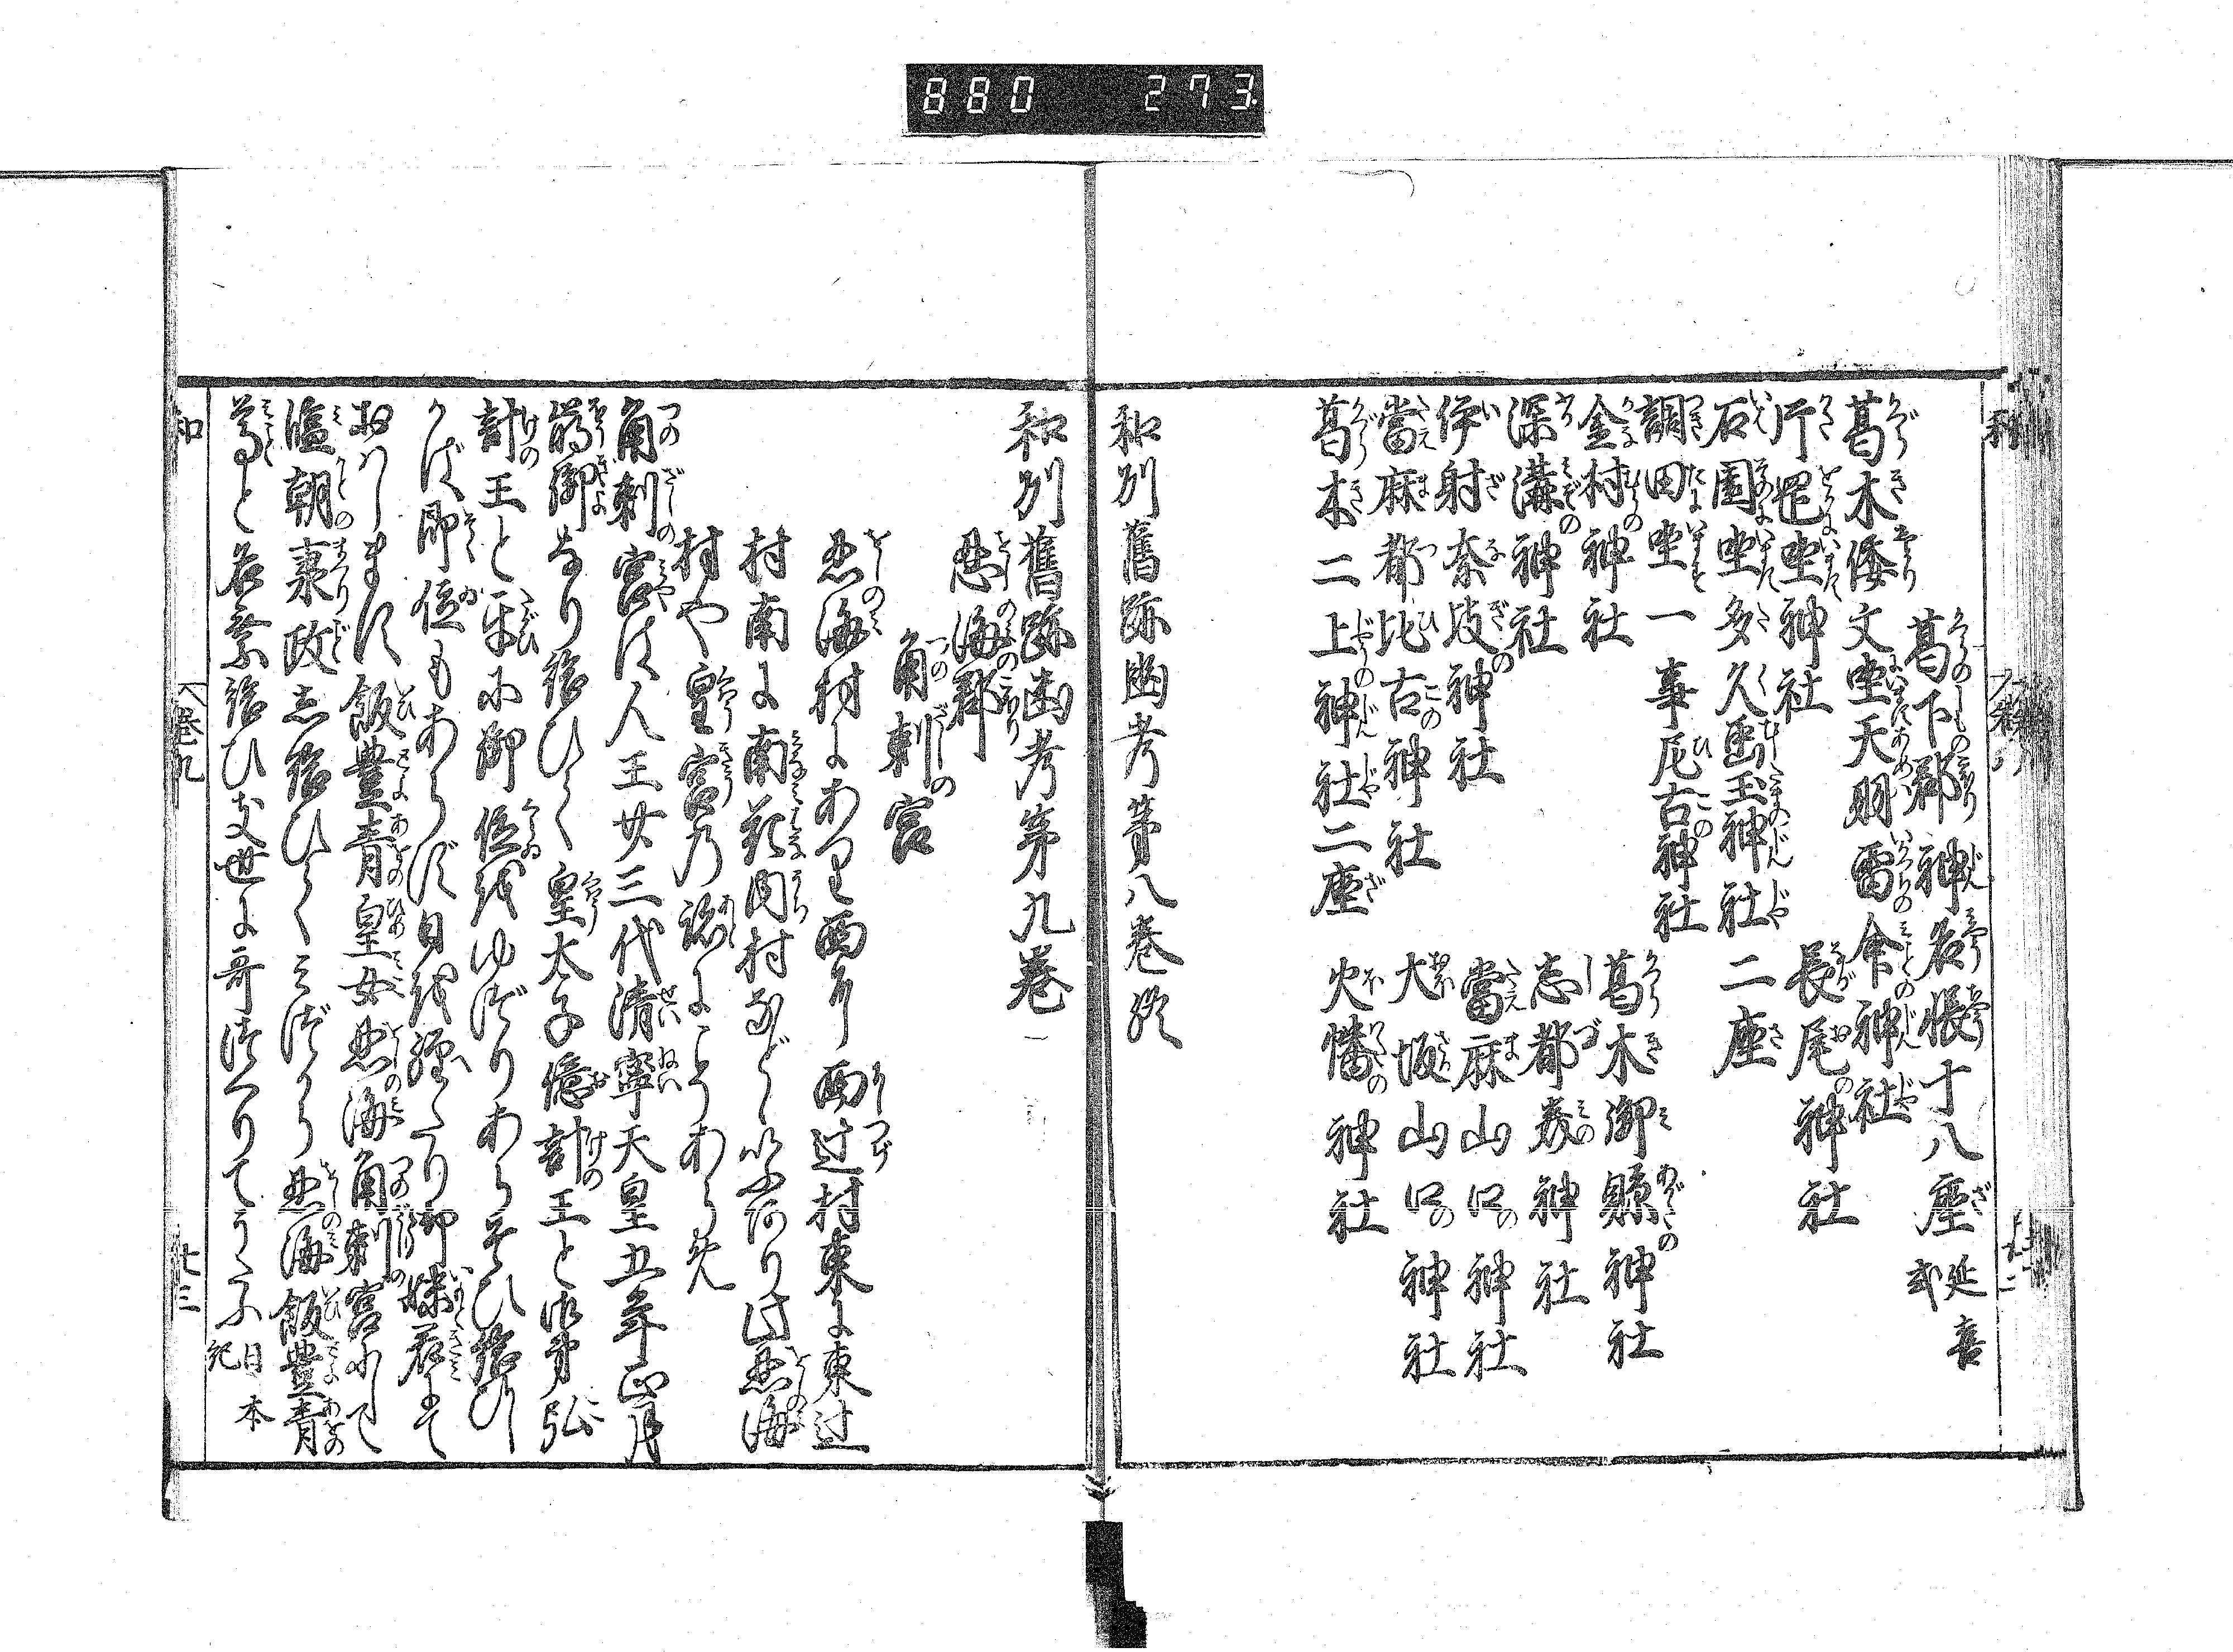 880 273
葛下郡神名帳十八座 延喜式
葛木倭文坐天羽雷命神社 長尾神社
片罡坐神社
石園坐多久虫玉神社二座
調田坐一事尼古神社 葛木御縣神社
金村神社 志都美神社
深溝神社 當麻山口神社
伊射奈岐神社 大坂山口神社
當麻都比古神社
葛木二上神社二座 火幡神社
和州舊跡幽考第八卷終
和州舊跡幽考第九卷
忍海郡
角刺宮
忍海村にあり西り西辻村東に東辻
村南に南花内村などいふ所り此忍海
村や皇宮乃跡にこそあらめ
角刺宮は人王廿三代清寧天皇五年正月
崩御なり給ひて皇太子億計王と御弟弘
計王と互に御位をゆづりあらそひ給ひし
かば即位もあらず日を經たり御妹君にて
おはします飯豊青皇女忍海角刺宮にして
臨朝秉政し給ひてみづから忍海飯豊青
尊と名乗給ひき世に哥つくりてうたふ 日本紀
卷九
七三